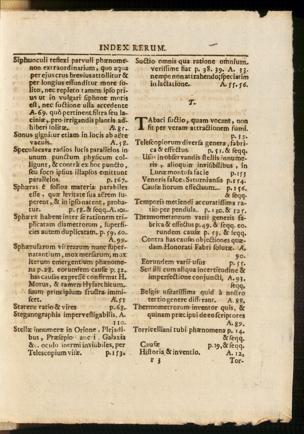 INDEX RERUM.
Siphunculi reflexi parvuli phænome-
non extraordinarium, quo aqua
per ejus crus brevius attollitur &
per longius effunditur more so-
lito, nec repleto tamen ipso pri-
us ut in vulgari siphone moris
est, nec suctione ulla accedente
A. 69. quo pertinent filtra sea la-
cinia, pro irrigandis plantis ad-
hiberi solitæ. A. 81.
Sonus gignitur etiam in locis ab aëre
vacuis. A. 58.
Specula cava radios lucis parallelos in
unum punctum physicum col-
ligunt, & contra ex hoc puncto,
seu foco ipsius illapsos emittunt
parallelos. p. 167.
Sphæras è solidiore materia parabiles
esse, quæ levitate sua actem supe-
rent, & in ipso natent, proba-
tur. p. 58. & seqq. A. 101.
Sphæræ habent inter se rationem tri-
plicatam diametrorum, superfi-
cies autem duplicatam. p. 59. 60.
A. 99.
Sphærularum vitrearum nunc super-
natantium, mox mersarum, mox
iterum emergentium phænome-
na p. 28. eorundem causæ p. 32.
has causas expresse confirmat H.
Morus, & tamen Hylarchicum,
suum principium frustra immi-
scet. A. 53
Stateræ ratio & vires p. 63.
Steganographia impervestigabilis. A.
110.
Stellæ innumeræ in Orione, Plejadi-
bus, Præsepio anc i. Galaxia
&c. oculo inermi inviubiles, per
Telescopium visæ. p. 153.
Suctio omnis qua ratione omnium.
verissime fiat p. 38. 39. A. 53.
nempe non attrahendo; speciatim
in lactatione. A. 55. 56.
T.
TAbaci suctio, quam vocant, non
fit per veram attractionem fumi.
p. 53.
Telescopiorum diversa genera, fabri-
ca & effectus p. 51. & seqq.
Usus in observandis stellis innume-
ris, alioquin invisibilibus, in
Luna montosa facie p. 155
Veneris falcæ. Saturni ansis p. 154.
Causæ horum effectuum. p. 156.
& seqq.
Temporis metiendi accuratissima ra-
tio per pendula. p. 130. & 135.
Thermometrorum varii generis fa-
brica & effectus p. 49. & seqq. eo-
rundem causa p. 52. & seqq.
Contra has causas objectiones quæ-
dam Honorati Fabri solutæ. A.
90.
Eorundem varii usus p. 55.
Sed illi cum aliqua incertitudine &
imperfectione conjuncti. A. 91.
& seqq.
Belgis usitatissimi quid à nostro
tertio genere differant. A. 88.
Thermometrorum inventor quis, &
quinam præcipui de eo scriptores
A. 89.
Torricelliani tubi phænomena p. 14.
& seqq.
Causæ p. 19, & seqq.
Historia & inventio. A. 12,
r 3 Tor-